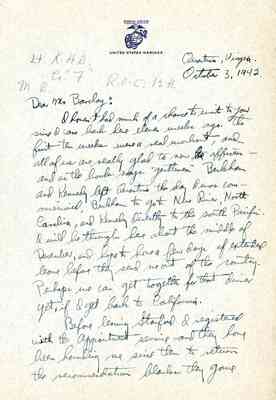 UNITED STATES MARINES
Quantico, Virginia
October 3, 1942
Lt. K.H.B.
Co. F
R.O.C. B.H.
Dear Mrs Barclay:
I haven't had much of a chance to write to you
since I came back here eleven weeks ago. The
first ten weeks were a real workout, and
all of us are really glad to now be officers
and as the books says "gentlemen".
and Kennedy left Quantico the day we were com-
missioned, to go to New River, North
Carolina, and Kennedy directly to the south Pacific.
I will be through here about the middle of
December, and hope to have few days of extended
leave before they send me out of the country.
Perhaps we can get together for that dinner
yet, if I get back to California.
Before leaving Stanford I registered
with the Appointment service and they have
been hounding me since then to return
the recommendation blanks they gave